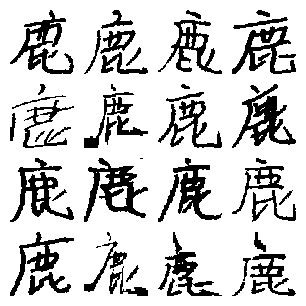 鹿鹿鹿鹿
鹿鹿鹿鹿
鹿鹿鹿鹿
鹿鹿鹿鹿